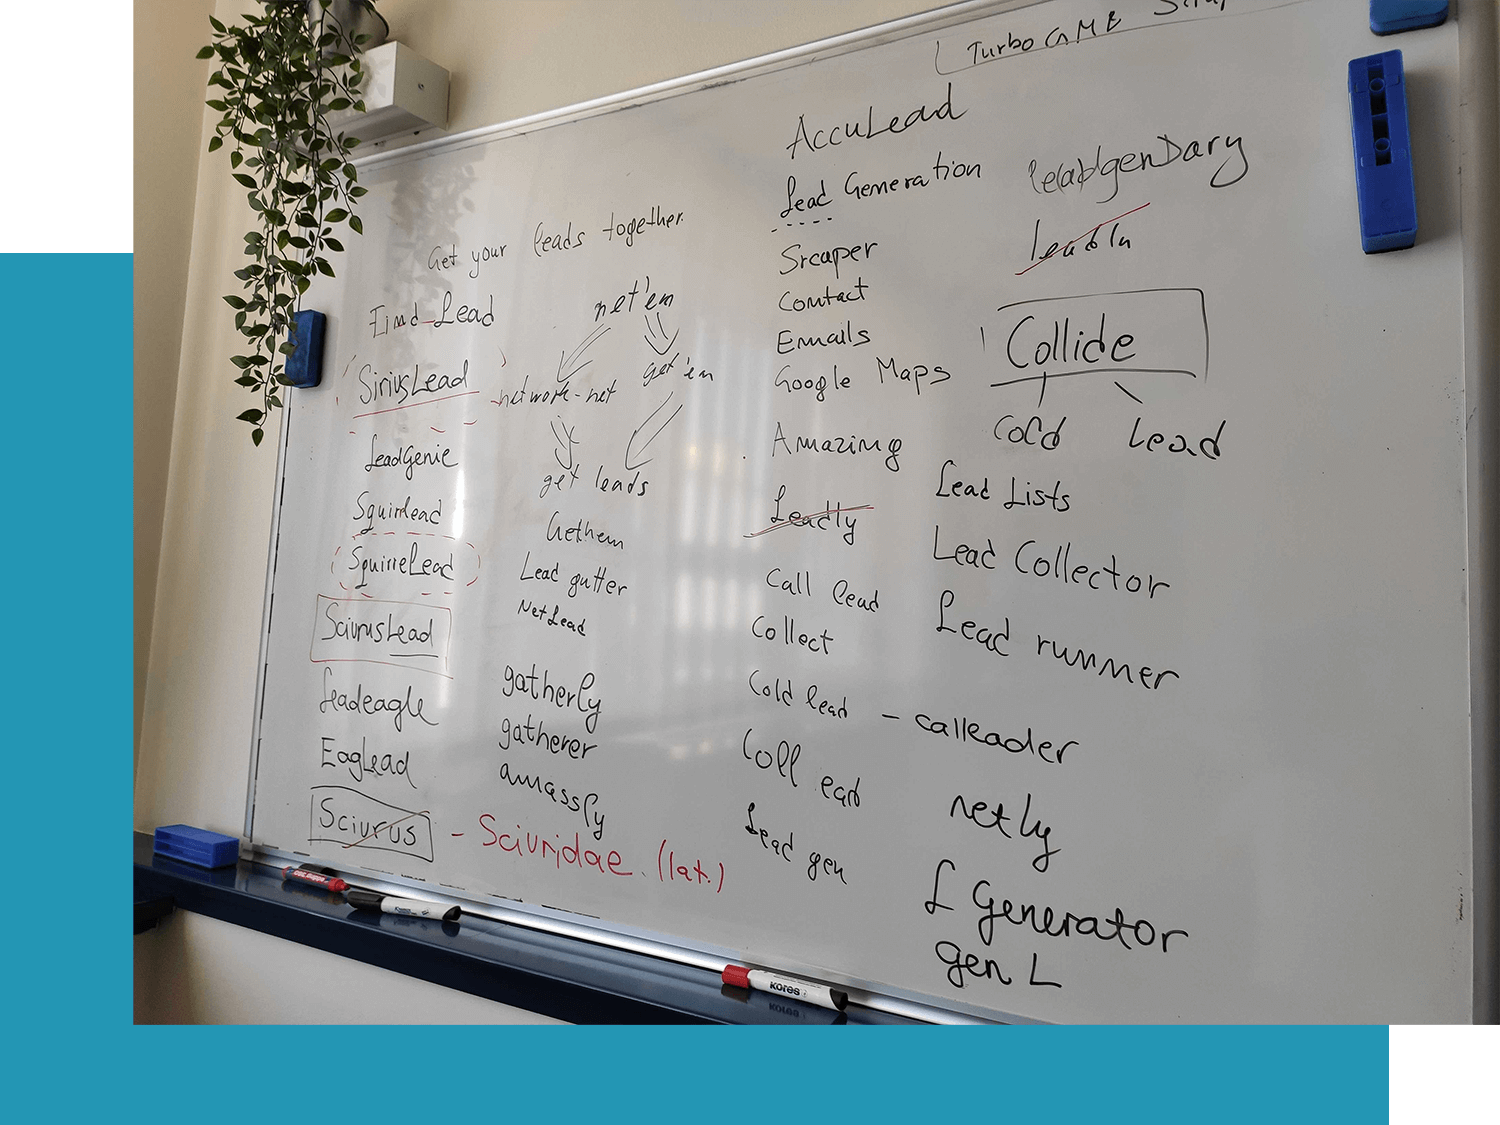 Turbo GMB
AccuLead
Lead Generation
leadgenDary
Get your leads together
Srcaper
leadIn
Find Lead
net'em
Contact
Emails
Collide
SiriusLead
network-net
get 'em
Google Maps
cold
Lead
LeadGenie
get leads
Amazing
Lead Lists
Squirlead
Gethem
Leadly
Lead Collector
SquirreLead
Lead gutter
Call lead
Lead runner
SciurusLead
NetLead
Collect
leadeagle
gatherly
Cold lead - calleader
EagLead
gatherer
Coll ead
netly
amassly
Sciurus - Sciuridae. (lat.)
Lead gen
L Generator
gen L
Kores